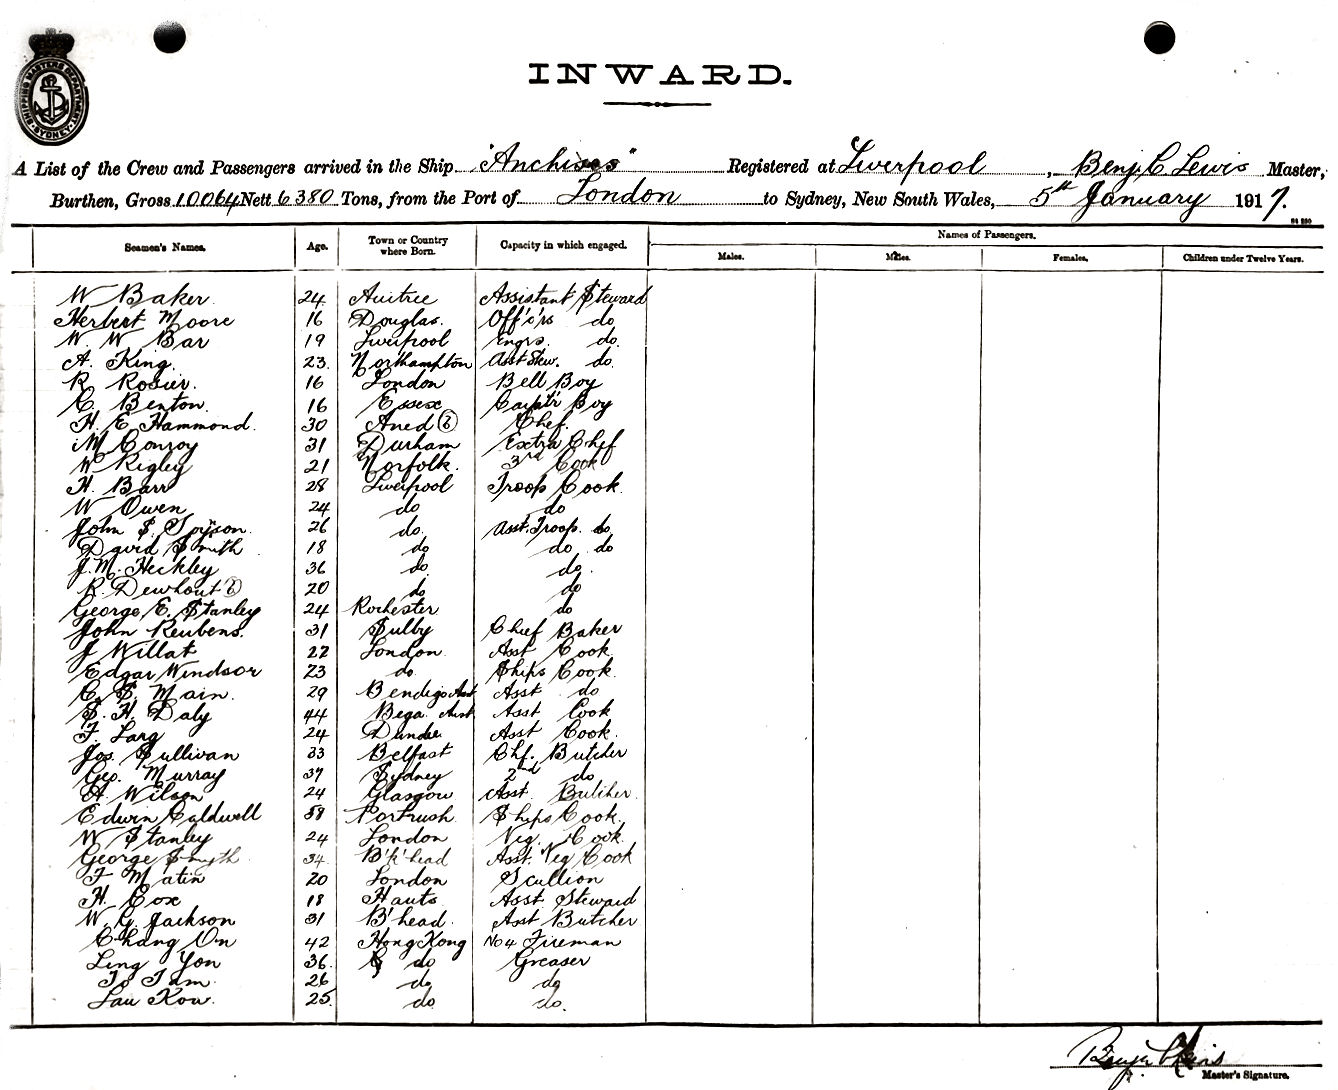 SHIPPING MASTERS DEPARTMENT SYDNEY
INWARD.
A List of the Crew and Passengers arrived in the Ship "Anchises" Registered at Liverpool, Benj. C Lewis Master,
Burthen, Gross 10064 Nett 6380 Tons, from the Port of London to Sydney, New South Wales, 5th January 1917.
Seamen's Names. Age. Town or Country where Born. Capacity in which engaged. Names of Passengers.
Males. Males. Females. Children under Twelve Years.
W Baker. 24 Assistant Steward
Herbert Moore 16 Douglas. do
W. W Bar 19 Liverpool Engrs. do.
A. King. 23. Northampton Asst Stew. do.
R Rosier. 16 London Bell Boy
C. Benton. 16 Essex Boy
H. E Hammond. 30 Chef.
M Conroy 31 Durham Extra Chef
W Rigley 21 Norfolk. 3rd Cook
H. Barr 28 Liverpool Troop Cook.
W Owen 24 do do
John S. 26 do. Asst. Troop. do
David Smith 18 do do do
J. M. Heckley 36 do. do.
R. Dewhout (?) 20 do do
George E. Stanley 24 Rochester do
John Reubens. 31 Sulby Chief Baker
J Willat 22 London. Asst Cook
Edgar Windsor 23 do. Ships Cook.
C. S. Main. 29 Bendigo Aust Asst do
S. H. Daly 44 Bega. Aust. Asst Cook
F. Larg 24 Dundee Asst Cook.
Jos. Sullivan 33 Belfast Chf. Butcher
Geo. Murray 37 Sydney 2nd do
A Wilson 24 Glasgow Asst. Butcher.
Edwin Caldwell 58 Portrush Ships Cook.
W Stanley 24 London Veg. Cook.
George Smyth 34. B'k'head Asst. Veg Cook
F Matin 20 London Scullion
H. Cox 18 Hauts Asst Steward
W G Jackson 31 B'head. Asst Butcher
Chang On 42 Hong Kong No 4 Fireman
Ling Yon 36. do Greaser
To Tam. 26 do do
Lau Kow. 25. do do.
Master's Signature.